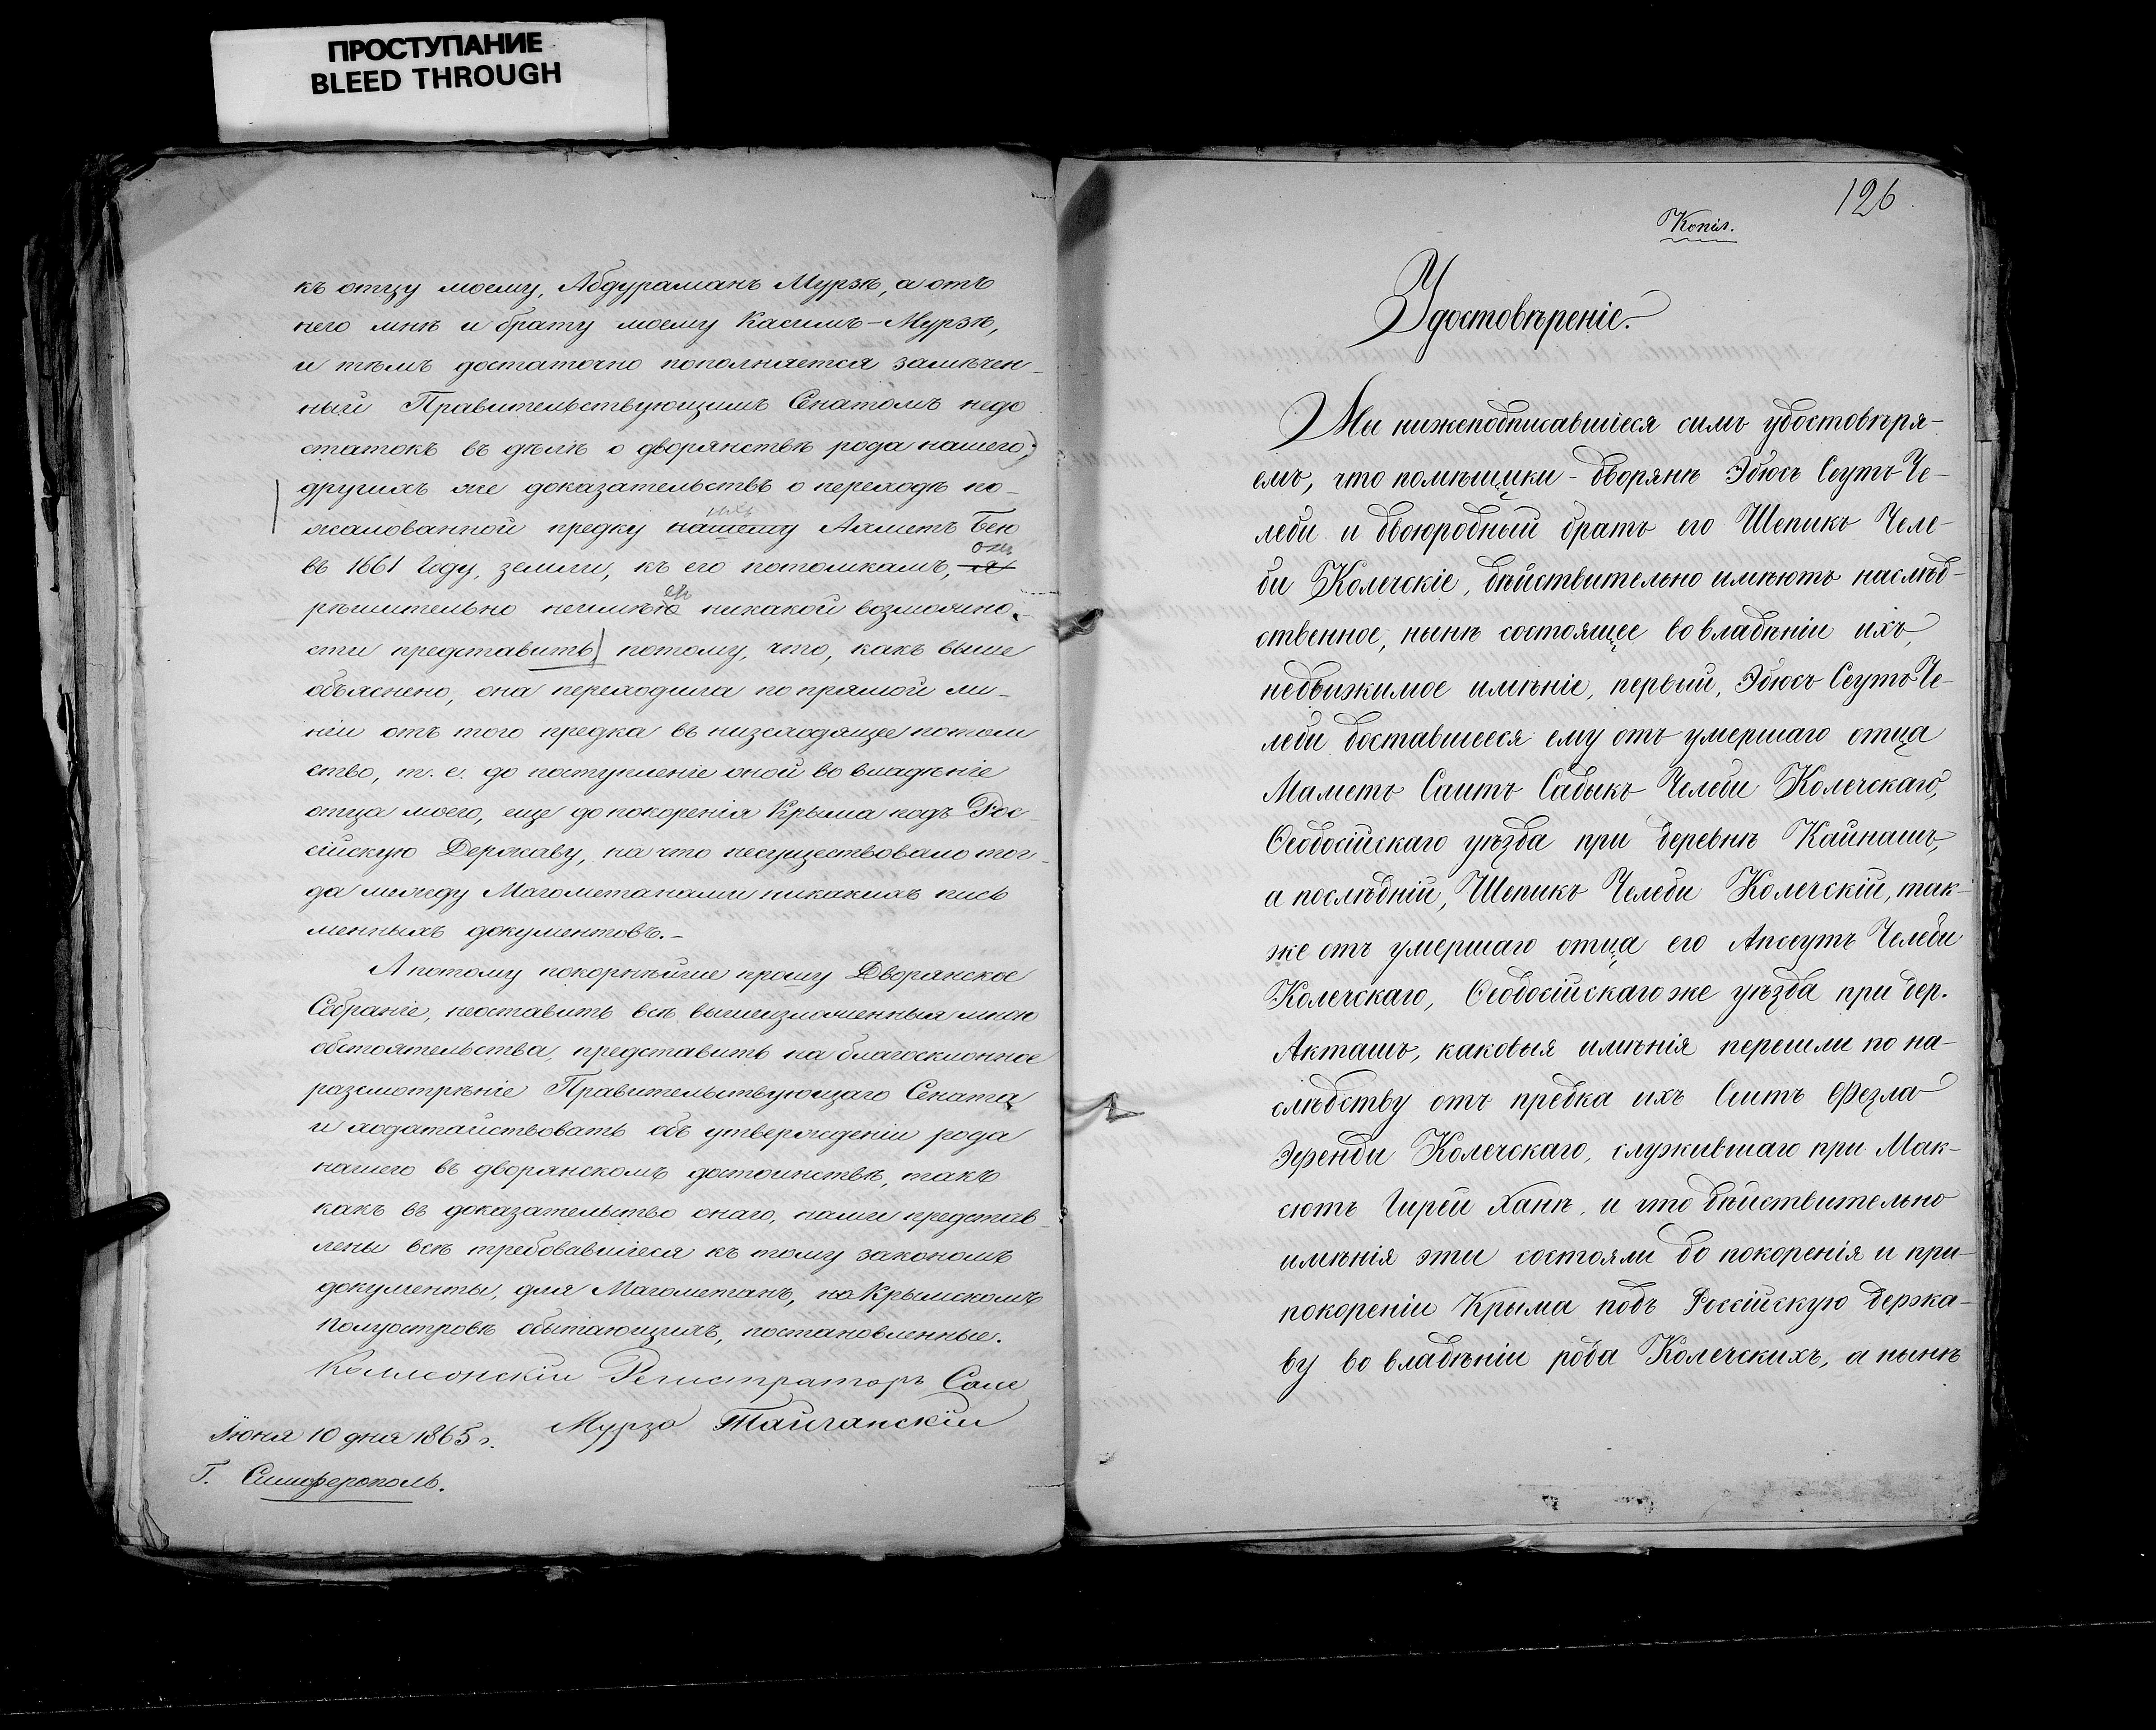 ПРОСТУПАНИЕ
BLEED THROUGH
къ отцу моему, Абдураманъ Мурзѣ, а отъ
него мнѣ и брату моему Касимъ-Мурзѣ,
и тѣмъ достаточно пополняется замѣчен-
ный Правительствующимъ Сенатомъ недо
статокъ въ дѣлѣ о дворянствѣ рода нашего;
другихъ же доказательствъ о переходѣ по-
жалованной предку нашему Ахметъ Бею
онъ
въ 1661 Году, земли, къ его потомкамъ, я
рѣшительно неимѣю никакой возможно-
сти представить потому, что, какъ выше
объяснено, она переходила по прямой ли-
ніи отъ того предка въ низходящее потом
ство, т. е. до поступленіе оной во владѣніе
отца моего, еще до покоренія Крыма подъ Рос-
сійскую Державу, на что несуществовало тог-
да между Магометанами никакихъ пись
менныхъ документовъ.-
А потому покорнѣйше прошу Дворянское
Собраніе, неоставить всѣ вышеизложенныя мною
обстоятельства, представить на благосклонное
разсмотрѣніе Правительствующаго Сената
и ходатайствовать объ утвержденіи рода
нашего въ дворянскомъ достоинствѣ, такъ
какъ въ доказательство онаго, нами представ-
лены всѣ требовавшіеся къ тому закономъ
документы, для Магометанъ, на Крымскомъ
полуостровѣ обитающихъ, постановленные.
Регистраторъ
Мурза Тайганскій
Іюня 10 дня 1865 г.
Г. Симферополь.
126
Копія.
Удостовѣреніе.
Мы нижеподписавшіеся симъ удостовѣря-
емъ, что помѣщики-дворяне Эбюсъ Сеутъ Че-
леби и двоюродный братъ его Шепикъ Челе-
би Колечскіе, дѣйствительно имѣютъ наслѣд-
ственное, нынѣ состоящее во владѣніи ихъ,
недвижимое имѣніе, первый, Эбюсъ Сеутъ Че-
леби доставшееся ему отъ умершаго отца
Маметъ Саитъ Садыкъ Челеби Колечскаго,
Ѳеодосійскаго уѣзда при деревнѣ Кайнашъ,
а послѣдній, Шепикъ Челеби Колечскій, так-
же отъ умершаго отца его Апсеутъ Челеби
Колечскаго, Ѳеодосійскаго же уѣзда при дер.
Акташъ, каковыя имѣнія перешли по на-
слѣдству отъ предка ихъ Сеитъ Фезла
Эфенди Колечскаго, служившаго при Мак-
сютъ Гирей Ханѣ, и что дѣйствительно
имѣнія эти состояли до покоренія и при
покореніи Крыма подъ Россійскую держа-
ву во владѣніи рода Колечскихъ, а нынѣ